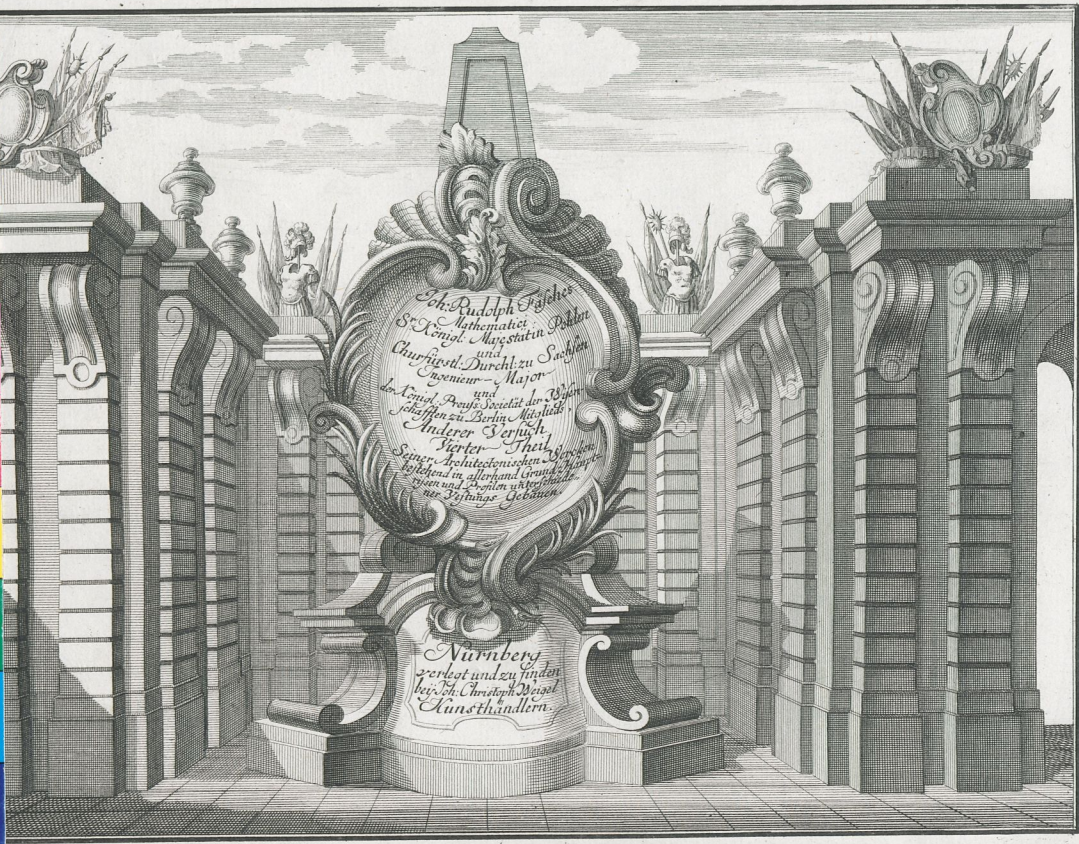 Joh: Rudolph Fäsches
Mathematici
Sr Königl: Majestät in Pohlen
und
Churfürstl: Durchl: zu Sachsen
Ingenieur-Major
und
der Königl. Preuß Societät der Wißen-
schafften zu Berlin Mitglieds
Anderer Versuch
Vierter Theil
Seiner Architectonischen Wercken
bestehend in allerhand Grund-Haupt-
rissen und Profilen unterschiede-
ner Vestungs Gebäuen.
Nürnberg
verlegt und zu finden
bey Joh: Christoph Weigel
Kunsthändlern.